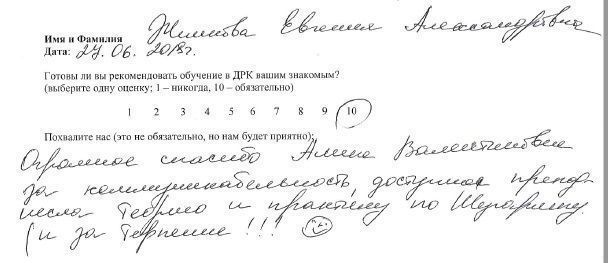 Имя и Фамилия Жишкова Евгения Александровна
Дата: 27.06.2018г.
Готовы ли вы рекомендовать обучение в ДРК вашим знакомым?
(выберите одну оценку; 1 – никогда, 10 – обязательно)
1 2 3 4 5 6 7 8 9 10
Похвалите нас (это не обязательно, но нам будет приятно):
Огромное спасибо Алине Валентиновне
за коммуникабельность, доступно препод
несла теорию и практику по Шугарингу
(и за терпение!!!